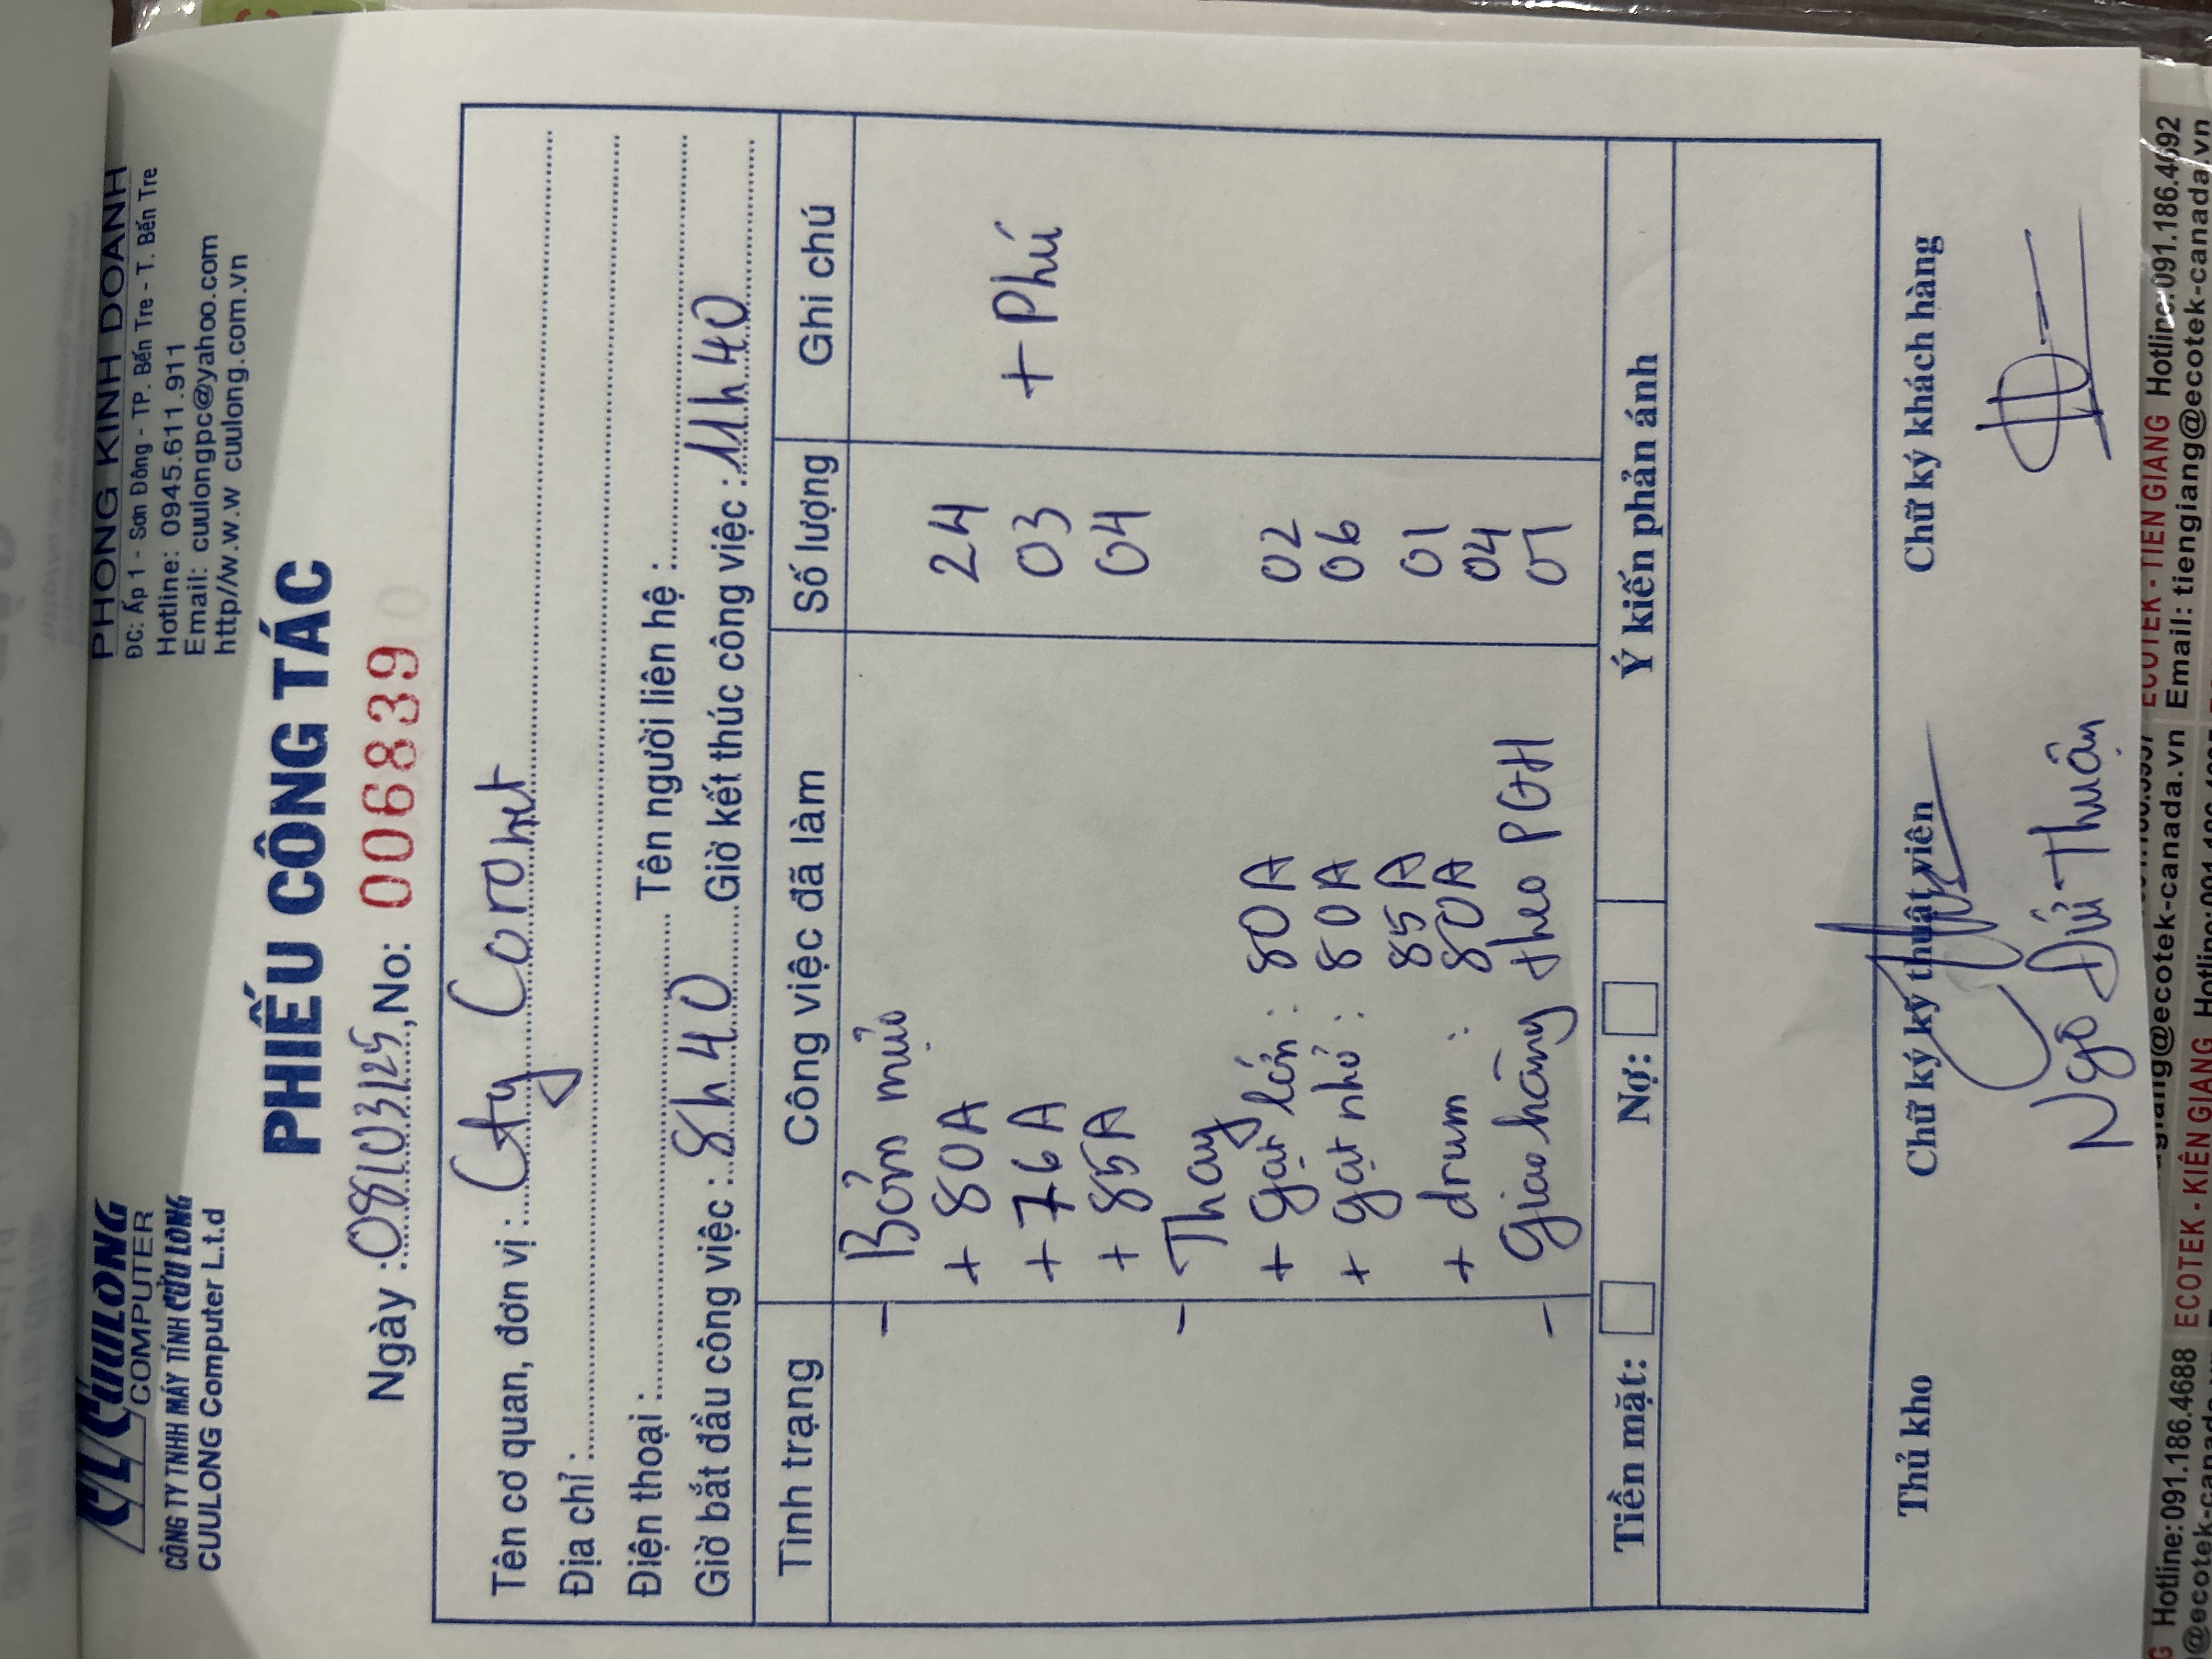 CL CỬULONG
COMPUTER
CÔNG TY TNHH MÁY TÍNH CỬU LONG
CUULONG Computer L.t.d
PHÒNG KINH DOANH
ĐC: Ấp 1 - Sơn Đông - TP. Bến Tre - T. Bến Tre
Hotline: 0945.611.911
Email: cuulongpc@yahoo.com
http//w.w.w cuulong.com.vn
PHIẾU CÔNG TÁC
Ngày : 08/03/25, No: 006839
Tên cơ quan, đơn vị : Cty Coronet
Địa chỉ :
Điện thoại : Tên người liên hệ :
Giờ bắt đầu công việc : 8h40 Giờ kết thúc công việc : 11h40
Tình trạng Công việc đã làm Số lượng Ghi chú
- Bơm mực
+ 80A 24
+ 76A 03 + Phú
+ 85A 04
- Thay
+ gạt lớn : 80A 02
+ gạt nhỏ : 80A 06
85A 01
+ drum : 80A 04
- Giao hàng theo PGH 01
Tiền mặt: Nợ: Ý kiến phản ánh
Thủ kho Chữ ký kỹ thuật viên Chữ ký khách hàng
Ngô Đức Thuận
Hotline:091.186.4688 ECOTEK - KIÊN GIANG ECOTEK - TIỀN GIANG Hotline:091.186.4692
giang@ecotek-canada.vn Email: tiengiang@ecotek-canada.vn